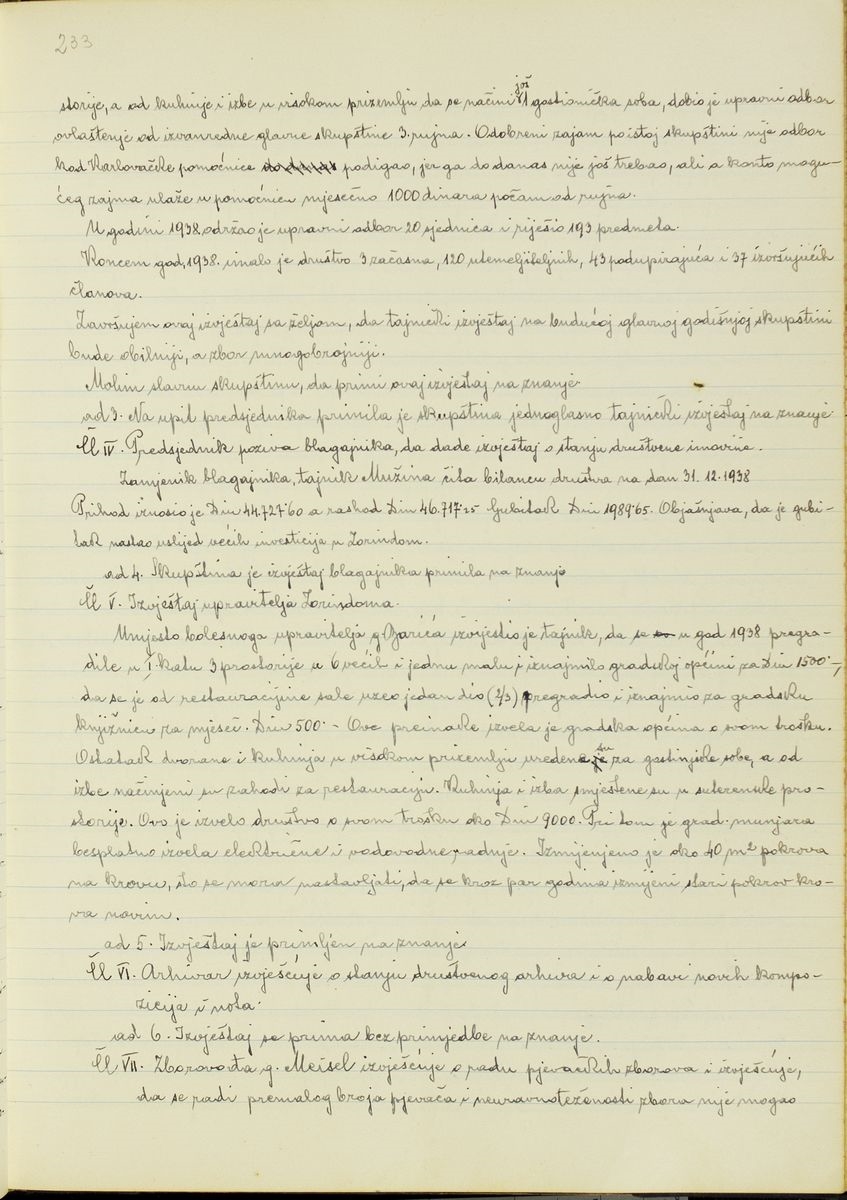 233
storije, a od kuhinje i izbe u visokom prizemlju da se načini još 1 gostionička soba, dobio je upravni odbor
ovlaštenje od izvanredne glavne skupštine 3. rujna. Odobreni zajam po istoj skupštini nije odbor
kod Karlovačke pomoćnice do danas podigao, jer ga do danas nije još trebao, ali a konto mogu-
ćeg zajma ulaže u pomoćnicu mjesečno 1000 dinara počam od rujna.
U godini 1938. održao je upravni odbor 20 sjednica i riješio 193 predmeta.
Koncem god. 1938. imalo je društvo 3 začasna, 120 utemeljiteljnih, 43 podupirajuća i 37 izvršujućih
članova.
Završujem ovaj izvještaj sa željom, da tajnički izvještaj na budućoj glavnoj godišnjoj skupštini
bude obilniji, a zbor mnogobrojniji.
Molim slavnu skupštinu, da primi ovaj izvještaj na znanje.
ad 3. Na upit predsjednika primila je skupština jednoglasno tajnički izvještaj na znanje.
Čl IV. Predsjednik poziva blagajnika, da dade izvještaj o stanju društvene imovine.
Zamjenik blagajnika, tajnik Mužina čita bilancu društva na dan 31. 12. 1938
Prihod iznosio je Din 44.727·60 a rashod Din 46.717·25 Gubitak Din 1989·65. Objašnjava, da je gubi-
tak nastao uslijed većih investicija u Zorindom.
ad 4. Skupština je izvještaj blagajnika primila na znanje
Čl V. Izvještaj upravitelja Zorindoma.
Umjesto bolesnoga upravitelja g. Barića izvijestio je tajnik, da se u god 1938 pregra-
dile u I katu 3 prostorije u 6 većih i jednu malu i iznajmilo gradskoj općini za Din 1500·-,
da se je od restauracijine sale uzeo jedan dio (2/3) pregradio i iznajmio za gradsku
knjižnicu za mjeseč. Din 500·- Ove preinake izvela je gradska općina o svom trošku.
Ostatak dvorane i kuhinja u visokom prizemlju uređene su za gostinjske sobe, a od
izbe načinjeni su zahodi za restauraciju. Kuhinja i izba smještene su u suterenske pro-
storije. Ovo je izvelo društvo o svom trošku oko Din 9000. Pri tom je grad. munjara
besplatno izvela električne i vodovodne radnje. Izmijenjeno je oko 40 m² pokrova
na krovu, što se mora nastavljati, da se kroz par godina izmijeni stari pokrov kro-
va novim.
ad 5. Izvještaj je primljen na znanje.
Čl VI. Arhivar izvješćuje o stanju društvenog arhiva i o nabavi novih kompo-
zicija i nota.
ad 6. Izvještaj se prima bez primjedbe na znanje.
Čl VII. Zborovođa g. Meisel izvješćuje o radu pjevačkih zborova i izvješćuje,
da se radi premalog broja pjevača i neuravnoteženosti zbora nije mogao